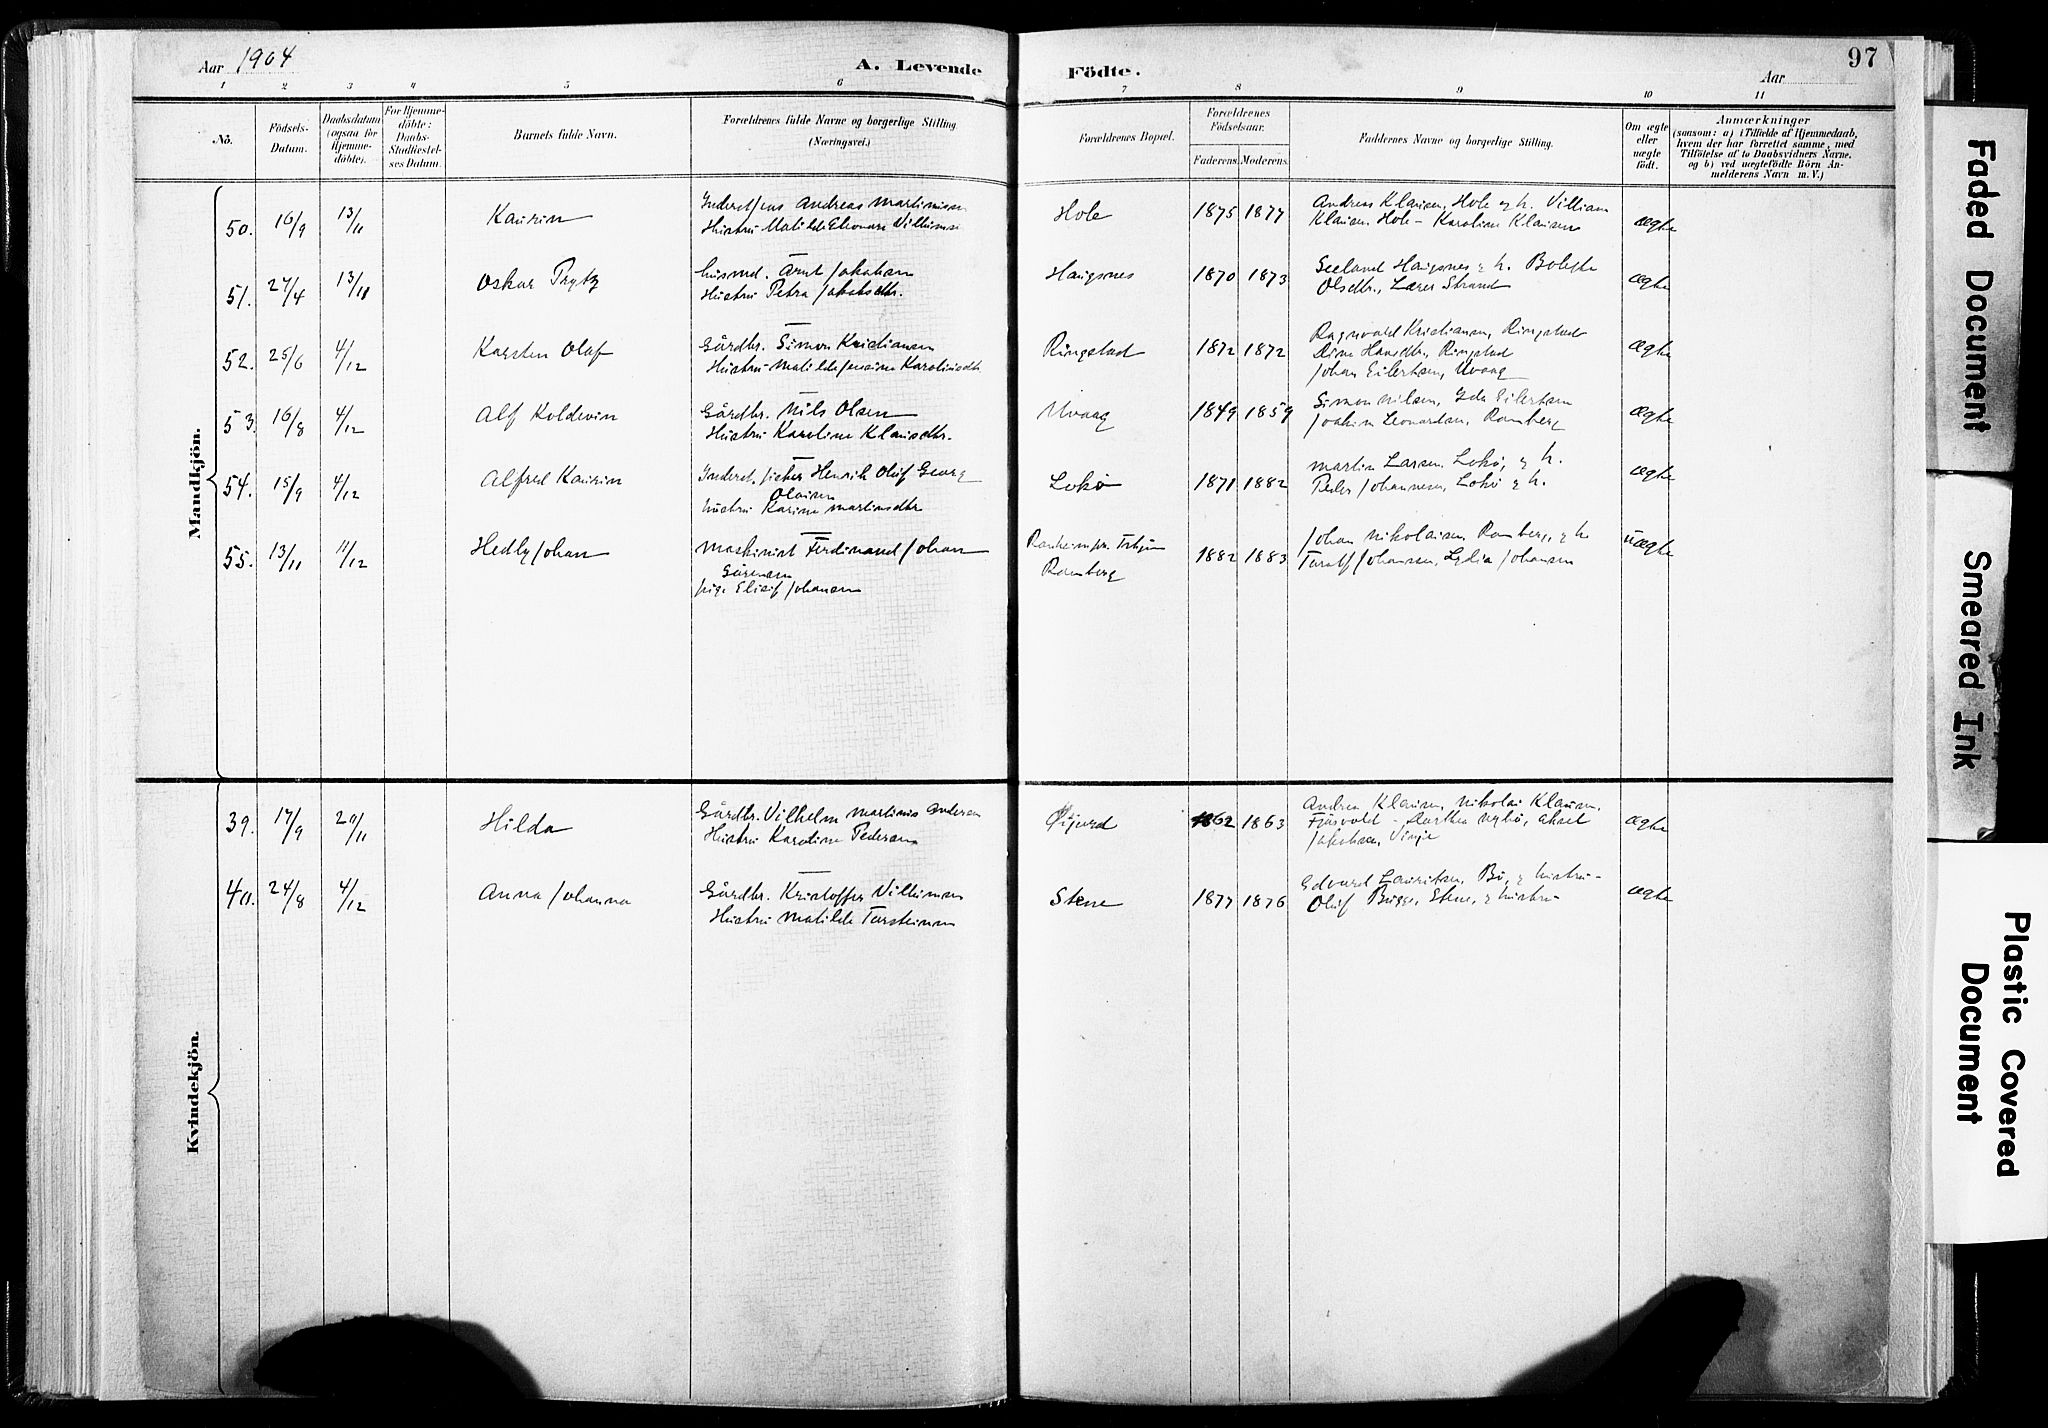 Aar 1904
A. Levende Födte.
Aar
97
1 2 3 4 5 6 7 8 9 10 11
No.
Födsels-Datum.
Daabsdatum (ogsaa for Hjemme-döbte).
For Hjemme-döbte: Daabs-Stadfæstel-ses Datum.
Barnets fulde Navn.
Forældrenes fulde Navne og borgerlige Stilling
(Næringsvei.)
Forældrenes Bopæl.
Forældrenes Födselsaar.
Faderens. Moderens.
Faddernes Navne og borgerlige Stilling.
Om ægte eller uægte födt.
Anmærkninger
(saasom: a) i Tilfælde af Hjemmedaab, hvem der har forrettet samme, med Tilföielse af to Daabsvidners Navne, og b) ved uægtefödte Börn Anmelderens Navn m. V.)
Mandkjön.
50. 16/9 13/11 Kaurin
Andreas Martinusen
Hustru Matilde Eleonora
Hole 1875 1877
Andreas Klausen, Hole & h. Villiam
Klausen Hole - Karoline Klausen
ægte
51. 27/4 13/11 Oskar Prytz
husmd. Arnt Jakobsen
Hustru Petra Jakobsdtr.
Haugsnes 1870 1873
Haugsnes & h.
Olsdtr., Lærer Strand
ægte
52. 25/6 4/12 Karsten Olaf
Gårdbr. Simon Kristiansen
Hustru Matilde
Ringstad 1872 1872
Ragnvard Kristiansen, Ringstad
Ringstad
Johan Eilertsen, Uvaag
ægte
53. 16/8 4/12 Alf Koldevin
Gårdbr. Nils Olsen
Hustru Karoline Klausdtr.
Uvaag 1849 1859
Simon Nilsen, Ida Eilertsen
Joakim Leonardsen, Ramberg
ægte
54. 15/9 4/12 Alfred Kaurin
Henrik Oluf Georg
Olaisen
hustru Karine Martinsdtr
Lokø 1871 1882
Martin Larsen, Lokø, & h.
Peder Johannesen, Lokø & h.
ægte
55. 13/11 11/12 Hedly Johan
Maskinist Ferdinand Johan
Sørensen
pige Elisif Johansen
Ramberg
1882 1883
Johan Nikolaisen Ramberg, & h
Johansen, Lydia Johansen
uægte
Kvindekjön.
39. 17/9 20/11 Hilda
Gårdbr. Vilhelm Martinus Andersen
Hustru Karoline Pedersen
Øijord 1862 1863
Andrea Klausen, Nikolai Klausen,
Fjøsvold - Dorthea Nybø, Aksel
Jakobsen, Vinje
ægte
40. 24/8 4/12 Anna Johanna
Gårdbr. Kristoffer Villumsen
Hustru Matilde Torsteinsen
Stene 1877 1876
Edvard Lauritsen, Bø, & hustru -
Oluf Bugge, Stene, & hustru -
ægte
Faded Document
Smeared Ink
Plastic Covered
Document